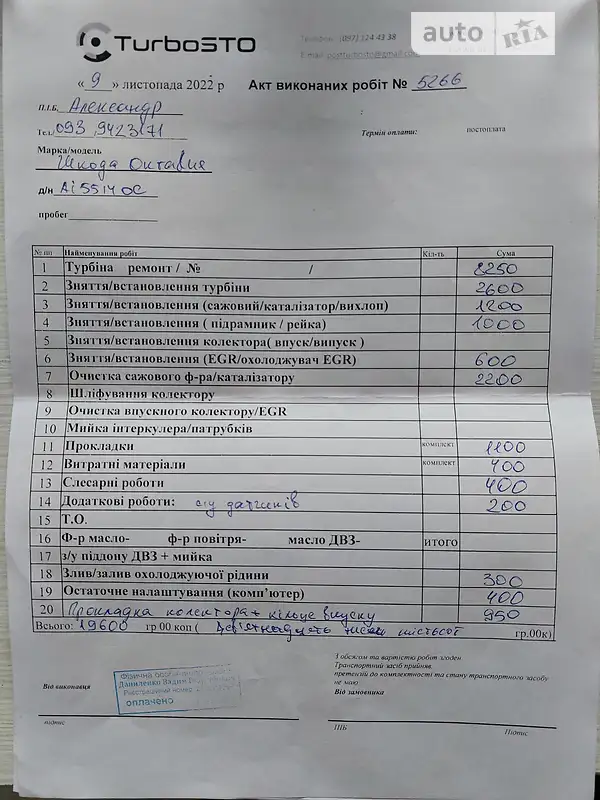 TurboSTO
Телефон: (097) 124 43 38
auto RIA
« 9 » листопада 2022 р Акт виконаних робіт № 5266
П.І.Б. Александр
Тел. 093 9423171
Термін оплати: постоплата
Марка/модель
Шкода Октавия
д/н Аі 5514 ОС
пробег
№ пп Найменування робіт Кіл-ть Сума
1 Турбіна ремонт / № / 8250
2 Зняття/встановлення турбіни 2600
3 Зняття/встановлення (сажовий/каталізатор/вихлоп) 1200
4 Зняття/встановлення ( підрамник / рейка) 1000
5 Зняття/встановлення колектора( впуск/випуск )
6 Зняття/встановлення (EGR/охолоджувач EGR) 600
7 Очистка сажового ф-ра/каталізатору 2200
8 Шліфування колектору
9 Очистка впускного колектору/EGR
10 Мийка інтеркулера/патрубків
11 Прокладки комплект 1100
12 Витратні матеріали комплект 400
13 Слесарні роботи 400
14 Додаткові роботи: с/у датчиків 200
15 Т.О.
16 Ф-р масло- ф-р повітря- масло ДВЗ- ИТОГО
17 з/у піддону ДВЗ + мийка
18 Злив/залив охолоджуючої рідини 300
19 Остаточне налаштування (комп’ютер) 400
20 Прокладка колектора + кільце впуску 950
Всього: 19600 гр 00 коп ( Дев'ятнадцять тисяч шістьсот гр.00к)
З обсягом та вартістю робіт згоден
Транспортний засіб прийняв.
претензій до комплектності та стану транспортного засобу
не маю
Від виконавця
Від замовника
Фізична особа
Даниленко Вадим
Реєстраційний номер
оплачено
підпис
ПІБ Підпис